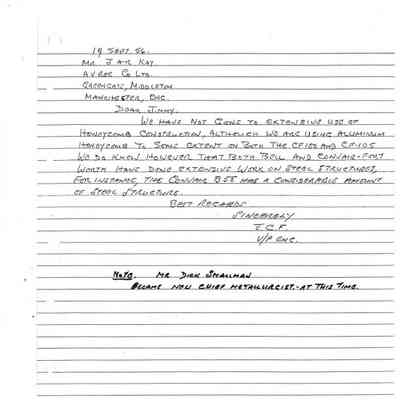 19 SEPT. 56.
MR J A R KAY.
A V ROE CO LTD.
GREENGATE, MIDDLETON
MANCHESTER, ENG.
DEAR JIMMY.
WE HAVE NOT GONE TO EXTENSIVE USE OF
HONEYCOMB CONSTRUCTION, ALTHOUGH WE ARE USING ALUMINUM
HONEYCOMB TO SOME EXTENT ON BOTH THE CF100 AND CF-105
WE DO KNOW HOWEVER THAT BOTH BELL AND CONVAIR-FORT
WORTH HAVE DONE EXTENSIVE WORK ON STEEL STRUCTURES,
FOR INSTANCE, THE CONVAIR B58 HAS A CONSIDERABLE AMOUNT
OF STEEL STRUCTURE.
BEST REGARDS
SINCERELY
J.C.F.
V/P ENG.
NOTE. MR DICK SMALLMAN
BECAME NEW CHIEF METALLURGIST.-AT THIS TIME.